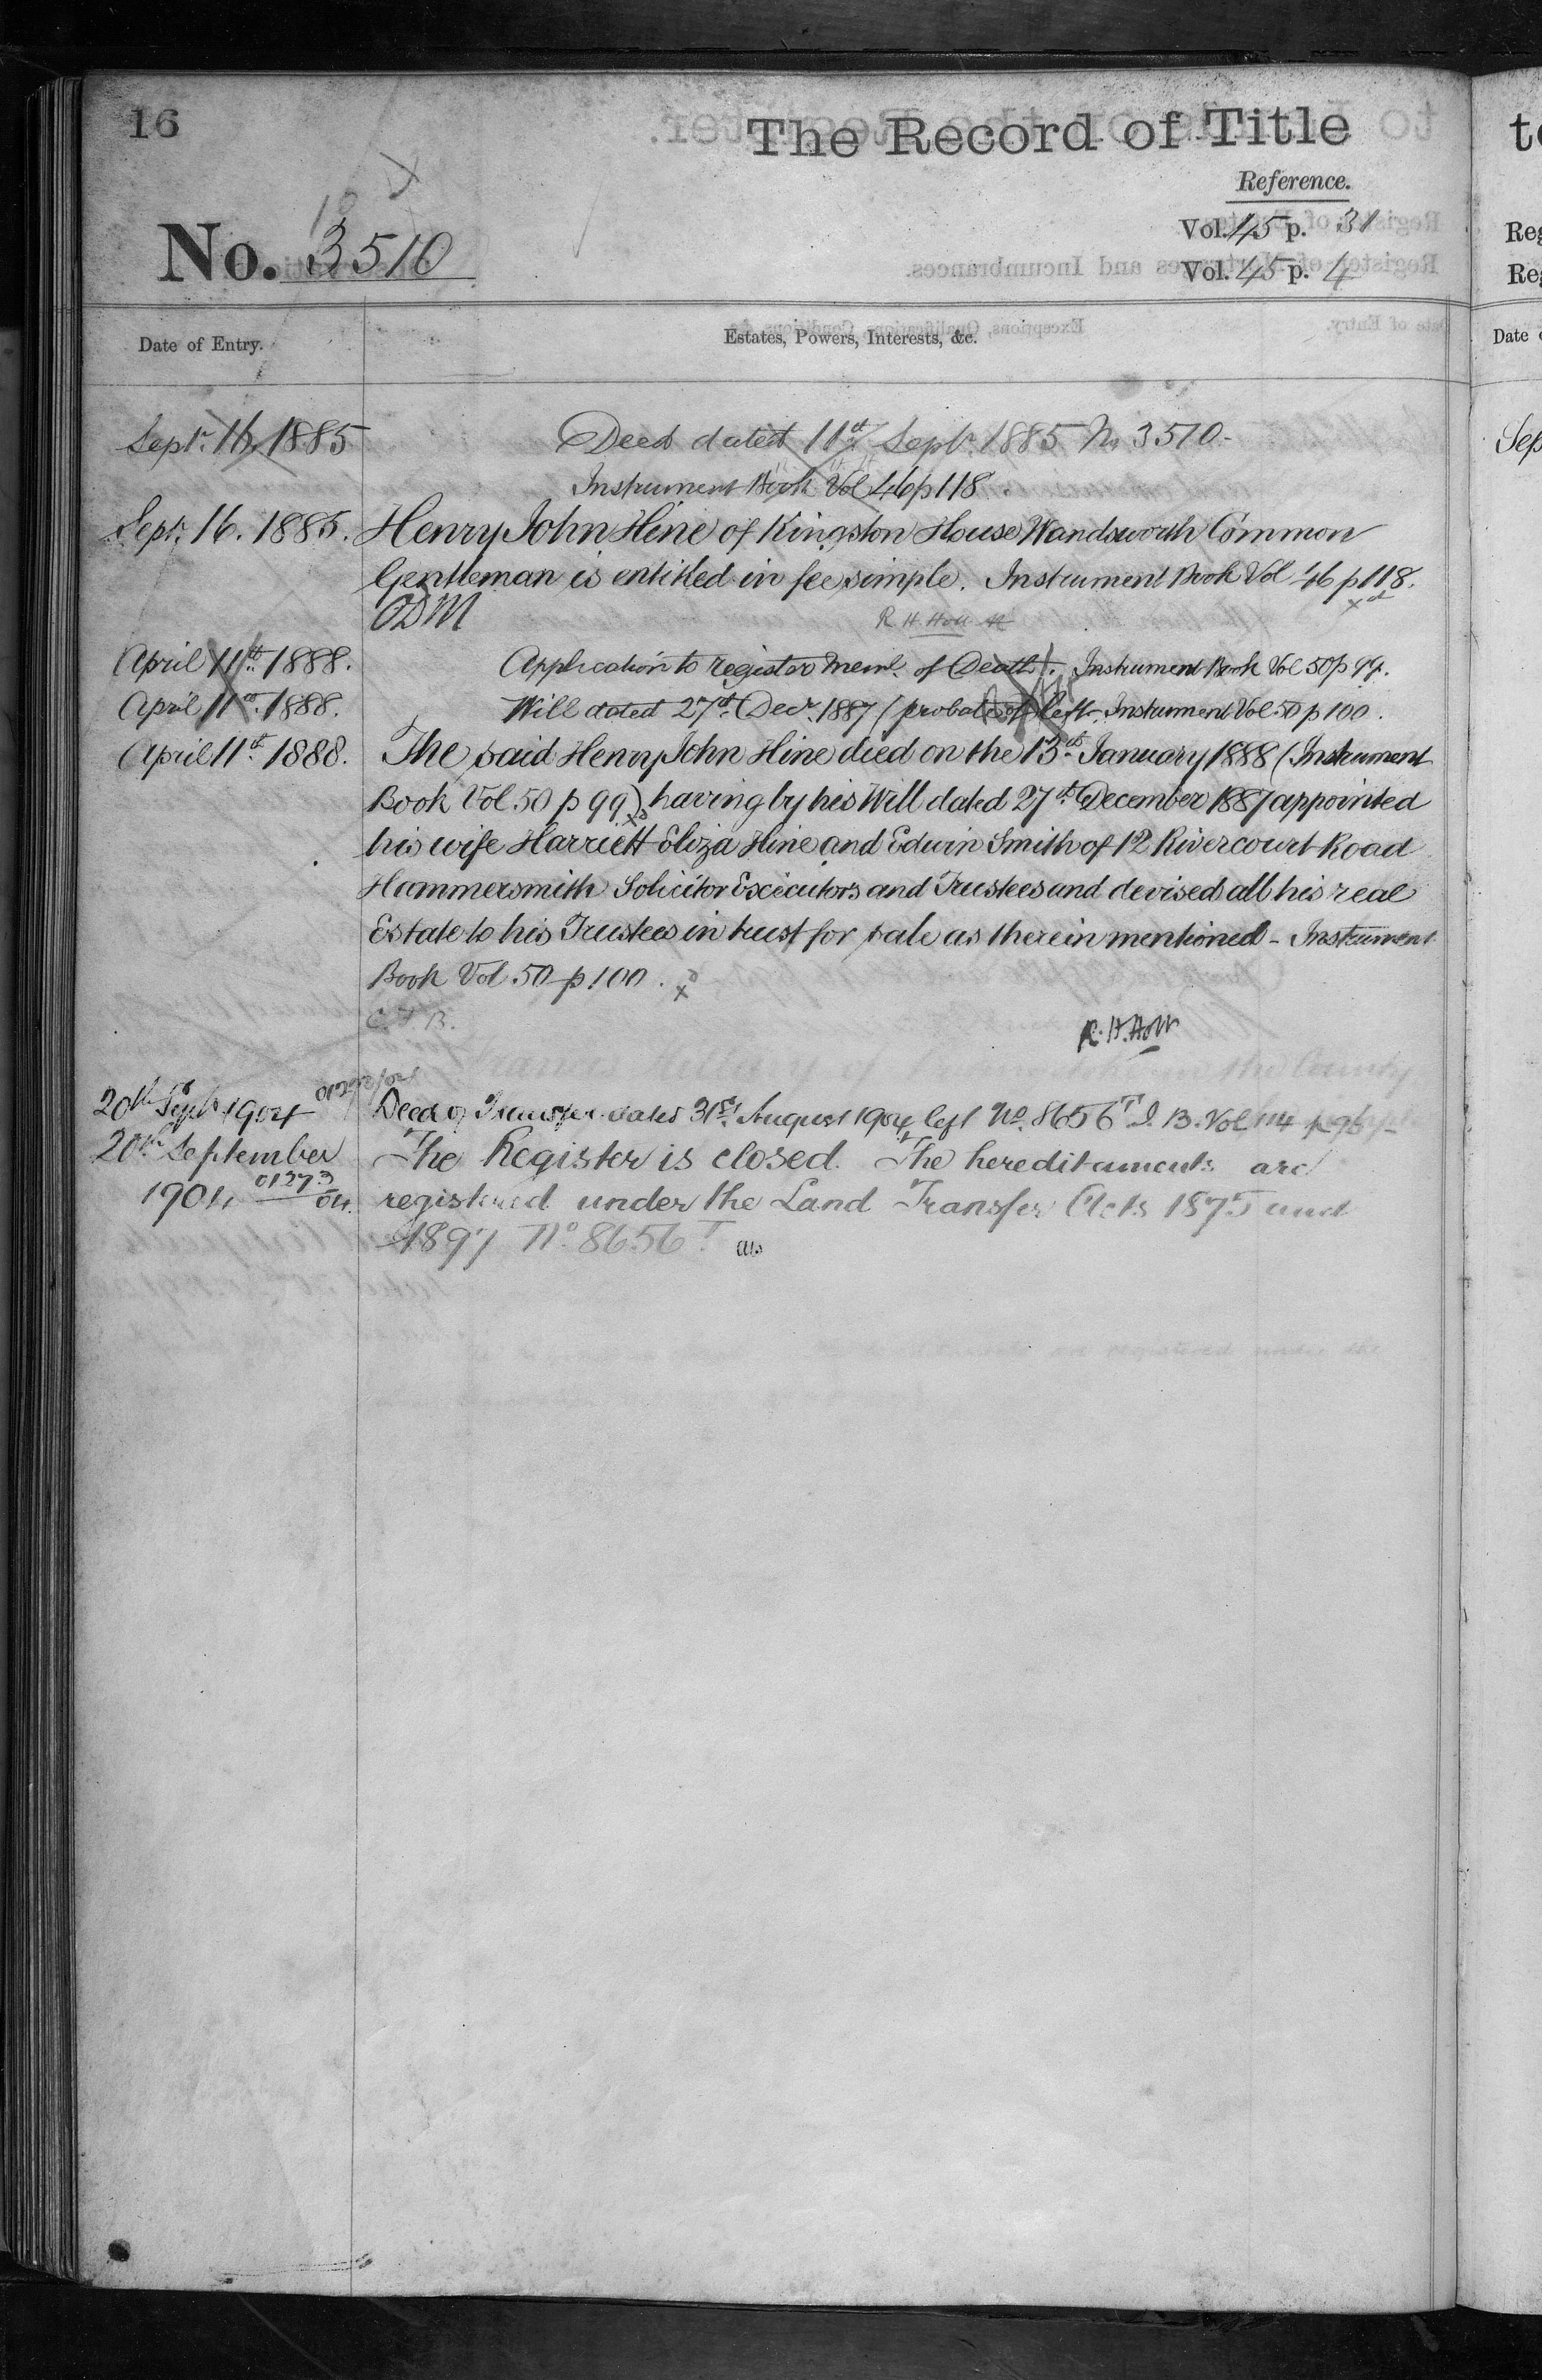 16
The Record of Title
Reference.
No. 3510
Vol. 45 p. 31
Vol. 45 p. 4
Date of Entry.
Estates, Powers, Interests, &c.
Date
Septr. 16, 1885
Deed dated 11th Septr. 1885 No 3510-
Sep
Instrument Book Vol 46 p 118
Septr. 16. 1885. Henry John Hine of Kingston House Wandsworth Common
Gentleman is entitled in fee simple. Instrument Book Vol 46 p 118.
ODM
R H Holt
April 11th 1888. Application to register Meml. of Death. Instrument Book Vol 50 p 99.
April 11th 1888. Will dated 27th Decr. 1887 (probate of) left. Instrument Vol 50 p 100.
April 11th 1888. The said Henry John Hine died on the 13th January 1888 (Instrument
Book Vol. 50 p 99) having by his Will dated 27th December 1887 appointed
his wife Harriett Eliza Hine and Edwin Smith of 12 Rivercourt Road
Hammersmith Solicitor Executors and Trustees and devised all his real
Estate to his Trustees in trust for sale as therein mentioned - Instrument
Book Vol 50 p 100.
R. H. Holt
20th Septr 1904 Deed of Transfer dated 31st August 1904 left No. 8656 T I. B. Vol 114 p 96
20th September The Register is closed. The hereditaments are
1904 01293/04 registered under the Land Transfer Acts 1875 and
1897 No 8656 T